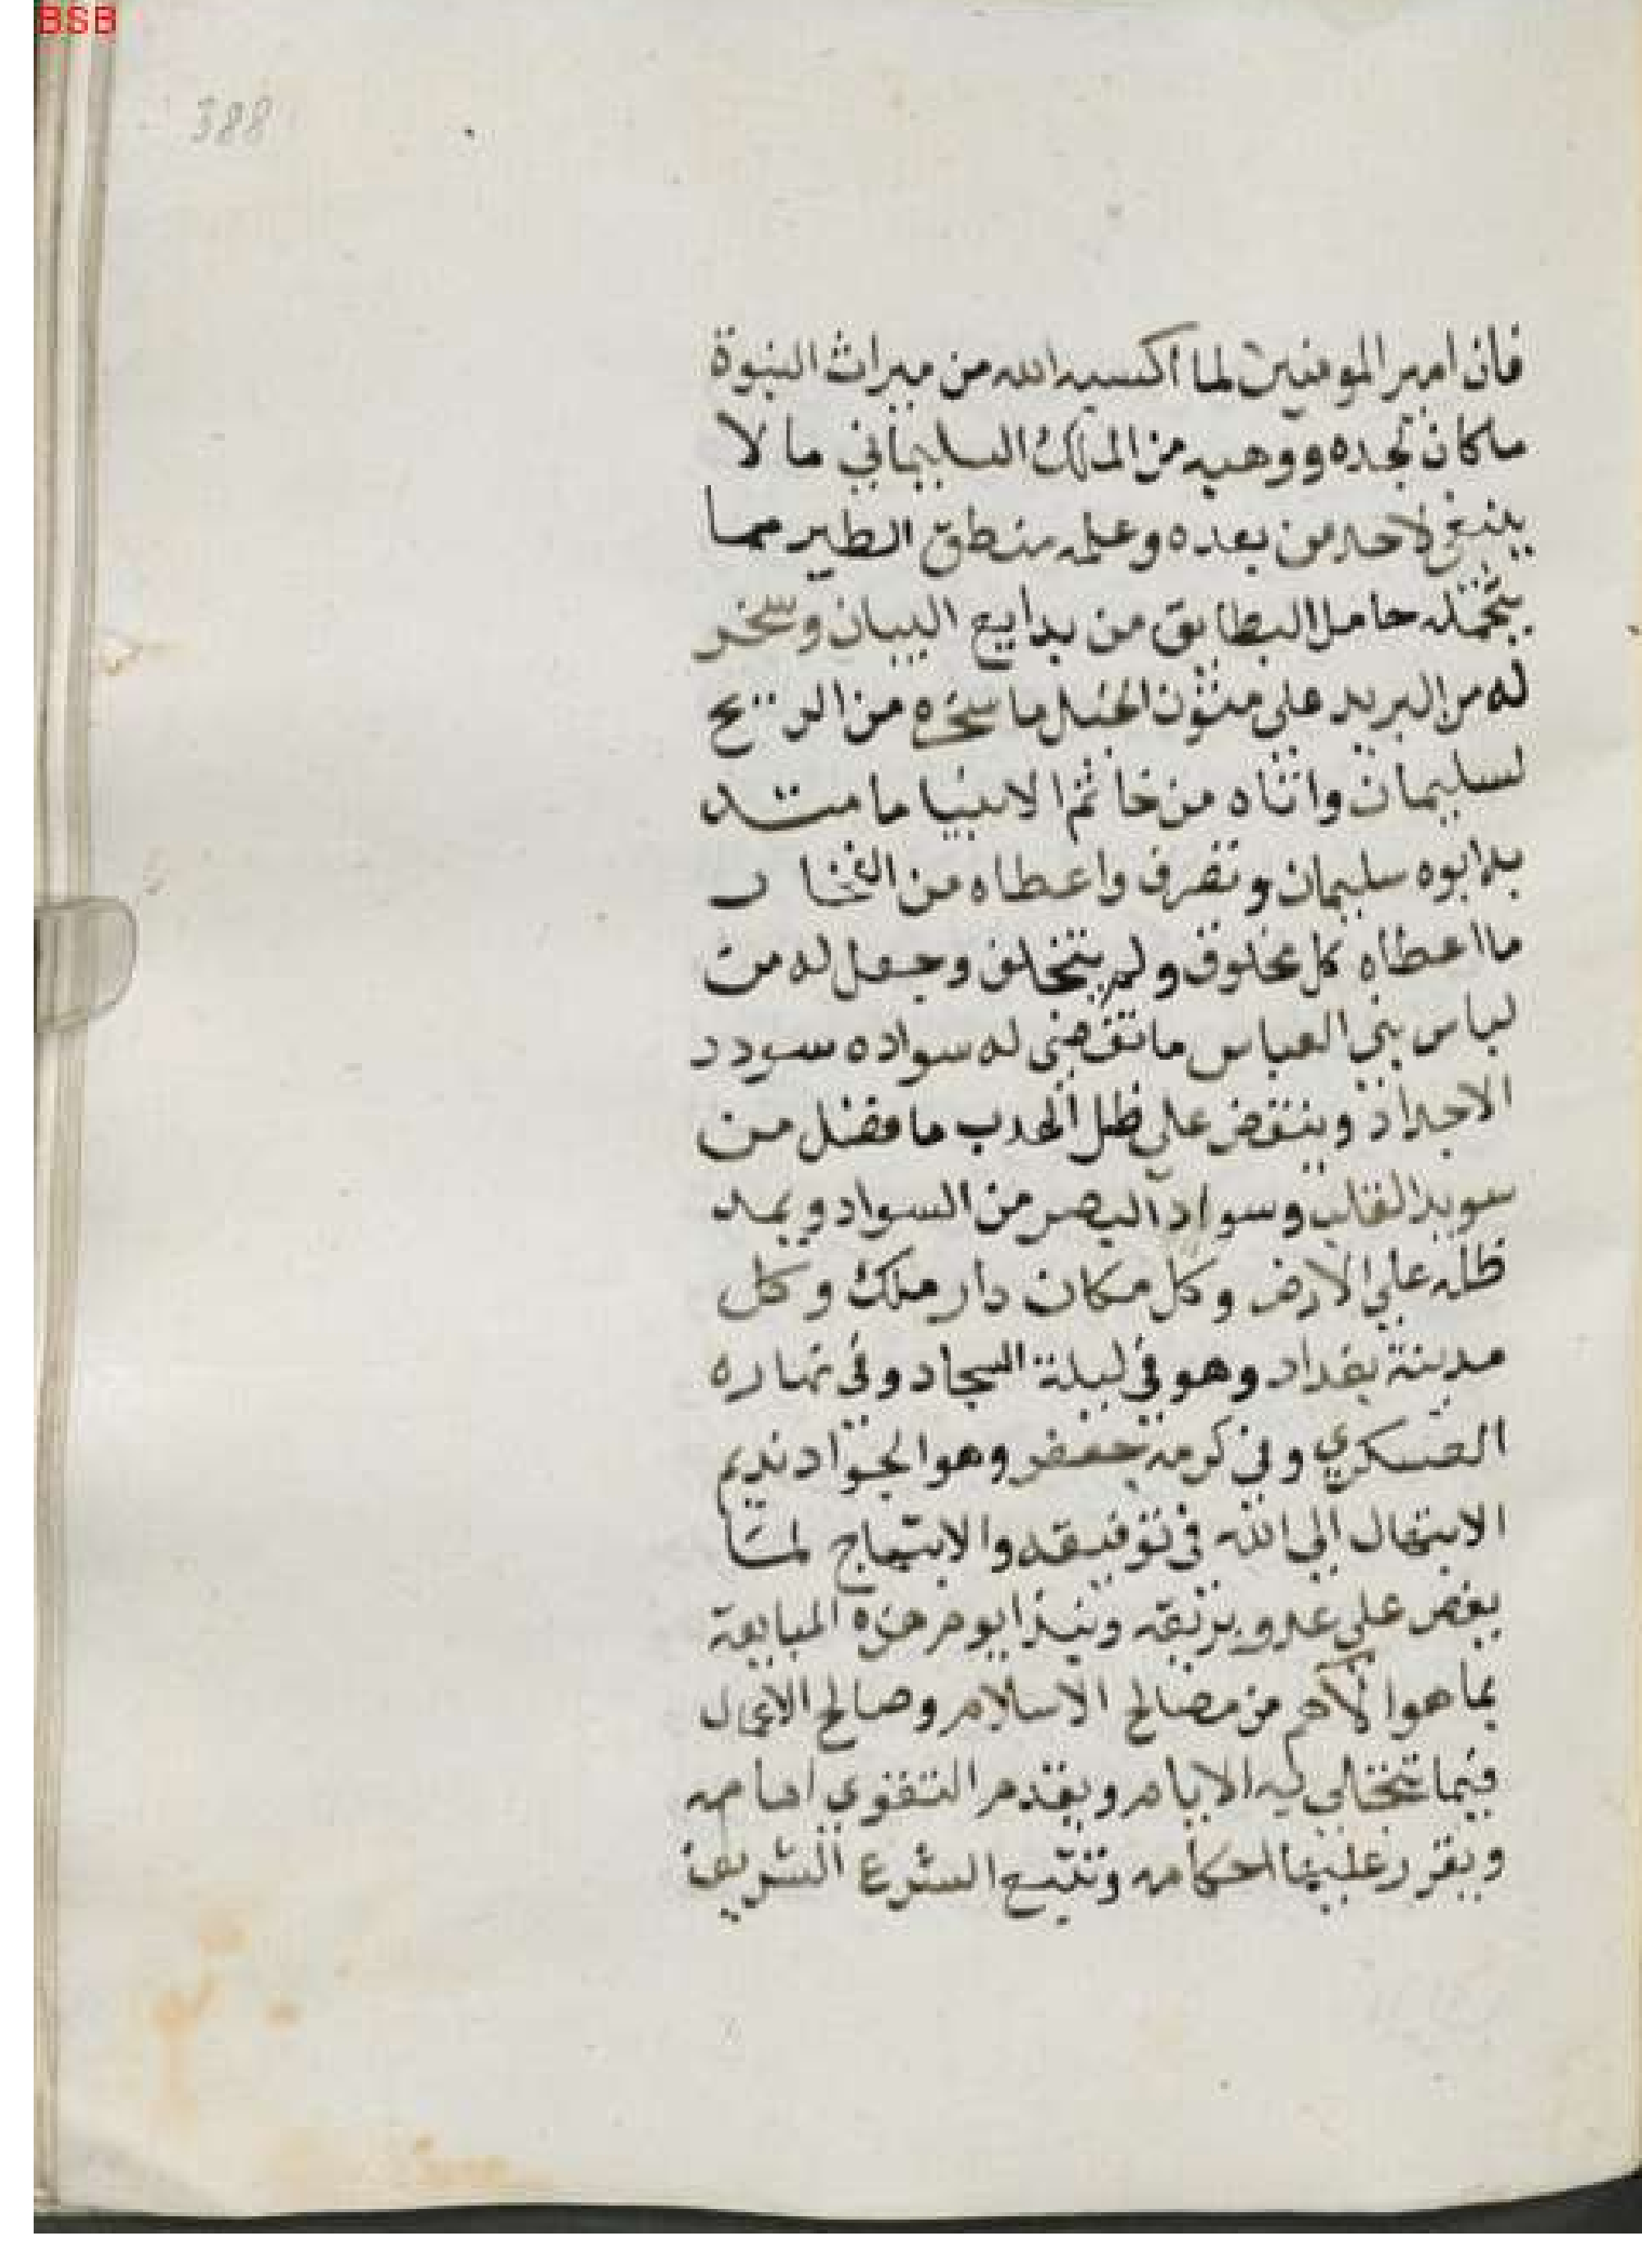 BSB
388
فان امير المومنين لما اكسبه الله من ميراث النبوة
ماكان لجده ووهبه من الملك السليماني ما لا
ينبغي لاحد من بعده وعلمه منطق الطير مما
يتحمله حامل البطايق من بدايع البيان وسخر
له من البريد على متون الخيل ما سخره من الريح
لسليمان واتاه من خاتم الانبيا ما
ابوه سليمان وتصرف واعطاه من الفخار
ما اعطاه كل مخلوق ولم يتخلف وجعل له من
لباس بني العباس ما تقضي له سواده سودد
الاجداد وينفض على ظل الهدب ما فضل من
سويدا القلب وسواد البصر من السواد ويمد
ظله على الارض وكل مكان دار ملك وكل
مدينة بغداد وهو في ليلة السجاد وفي نهاره
العسكري وفي كرمه جعفر وهو الجواد نديم
الابتهال الى الله في توفيقه والابتهاج لمـا
يغص على عدو بريقه يوم هذه المبايعة
بما هو الاهم من مصالح الاسلام وصالح الاعمال
فيما الايام ويقدم التقوى امامه
ويقرر عليها احكامه وتتبع الشرع الشريف